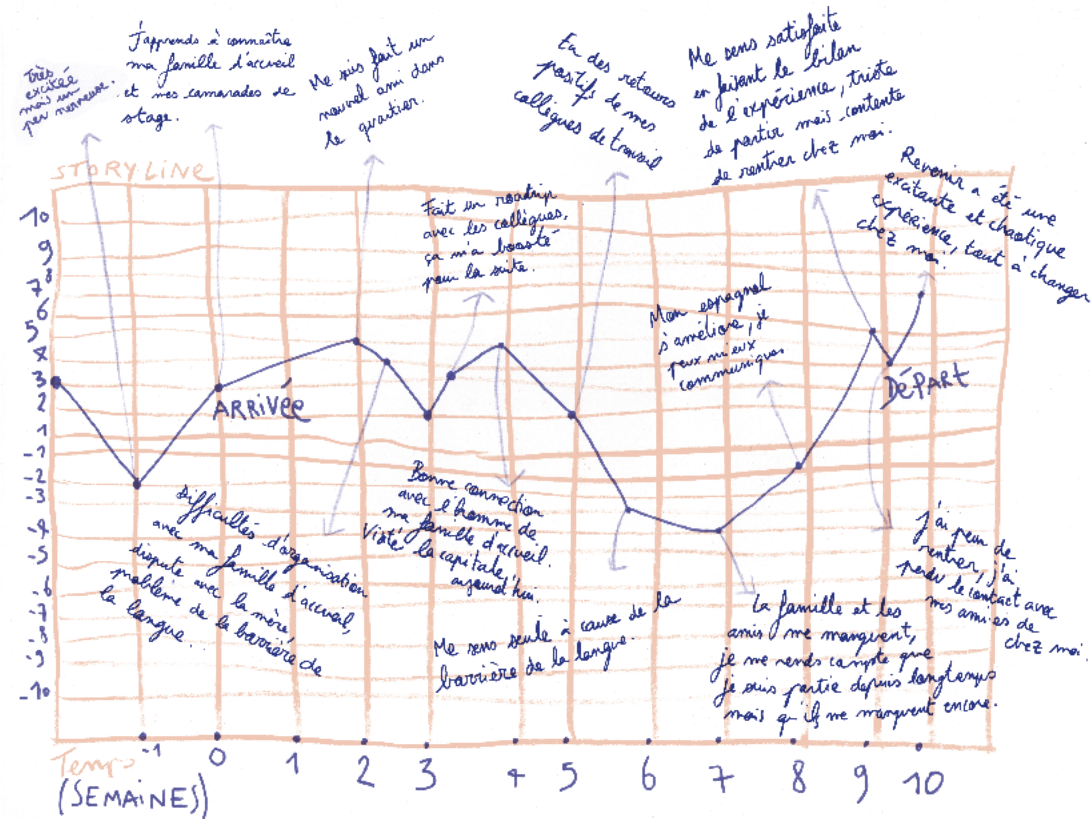 Très
excitée
mais un
peu nerveuse.
J'apprends à connaître
ma famille d'accueil
et mes camarades de
stage.
Me suis fait un
nouvel ami dans
le quartier.
Eu des retours
positifs de mes
collègues de travail
Me sens satisfaite
en faisant le bilan
de l'expérience, triste
de partir mais contente
de rentrer chez moi.
Revenir a été une
excitante et chaotique
expérience, tout à changer
chez moi.
STORYLINE
Fait un roadtrip
avec les collègues,
ça m'a boosté
pour la suite.
Mon espagnol
s'améliore, je
peux mieux
communiquer
10
9
8
7
6
5
4
3
2
1
-1
-2
-3
-4
-5
-6
-7
-8
-9
-10
ARRIVÉE
DÉPART
Difficultés d'organisation
avec ma famille d'accueil,
dispute avec la mère,
problème de la barrière de
la langue.
Bonne connection
avec l'homme de
ma famille d'accueil.
Visité la capitale
aujourd'hui.
Me sens seule à cause de la
barrière de la langue.
La famille et les
amis me manquent,
je me rends compte que
je suis partie depuis longtemps
mais qu'ils me manquent encore.
J'ai peur de
rentrer, j'ai
perdu le contact avec
mes ami.es de
chez moi.
Temps
(SEMAINES)
-1 0 1 2 3 4 5 6 7 8 9 10